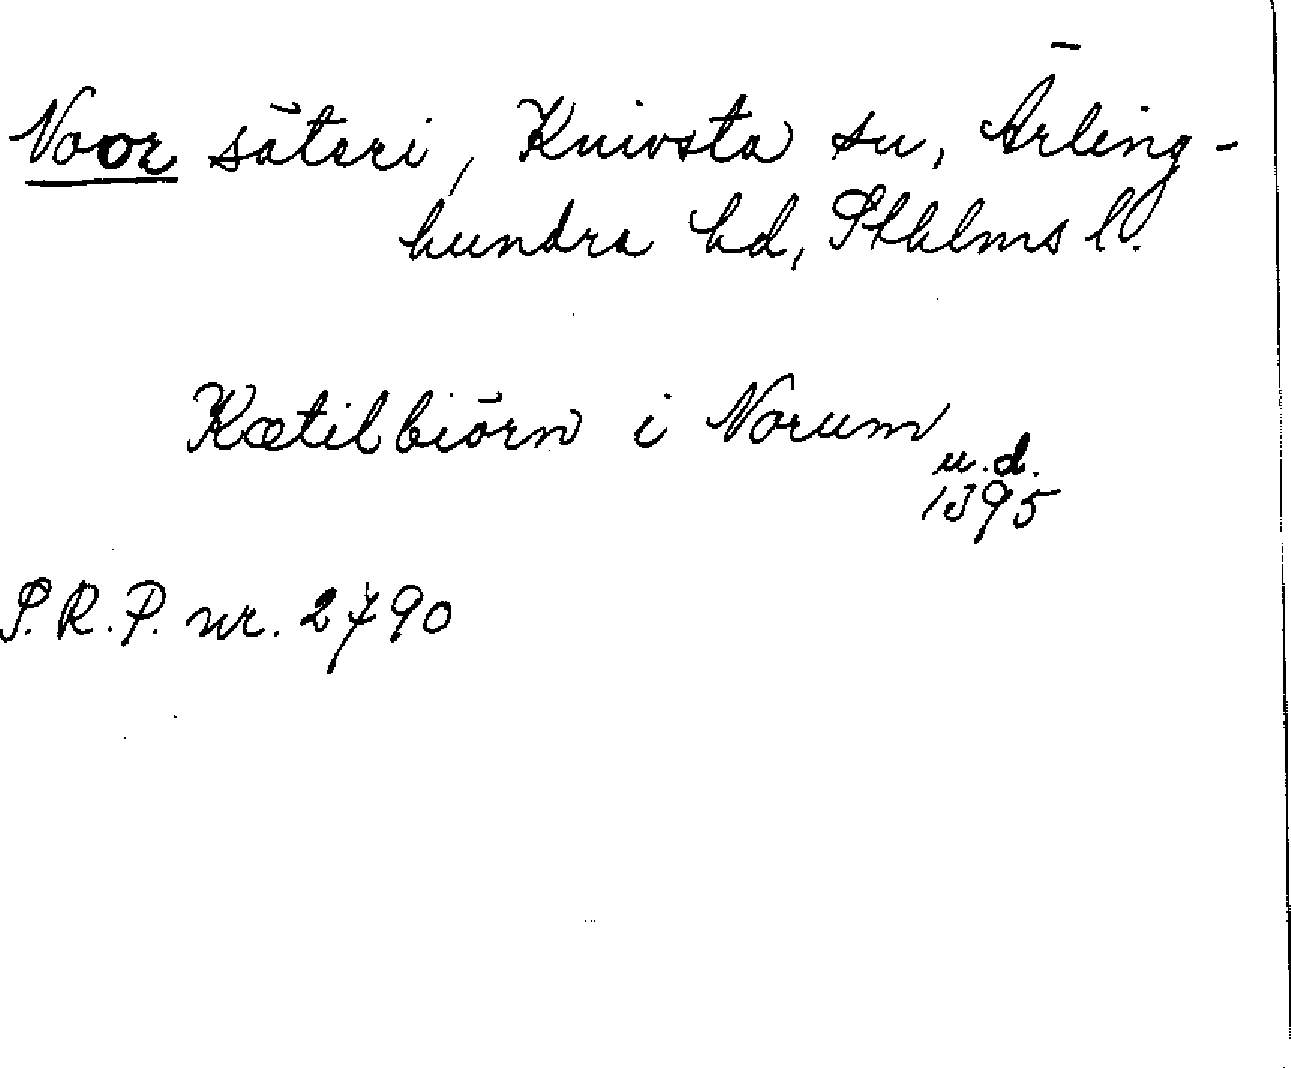 Noor säteri, Knivsta sn, Ärling-
hundra hd, Sthlms l.
Kætilbiörn i Norum
u.d.
1395
P.R.P. nr. 2790